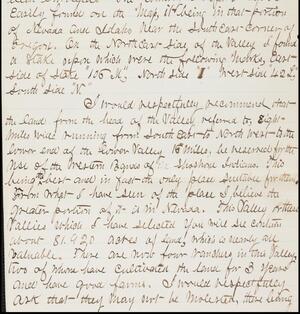 Easily found on the Map, it being in that portion
of Nevada and Idaho near the South East Corner of
Oregon. On the North East Side of the Valley I found
a Stake upon which were the following Marks, East
Side of State "106 M", North Side "I" West Side 42 L.
South Side "N."
I would respectfully recommend that
the land from the head of the Valley referred to, Eight
Miles wide running from South East to North West to the
lower end of the Lower Valley 16 Miles, be reserved for the
use of the Western Bands of the Shoshone Indians. This
being the best and in fact the only place suitable for them.
From what I have seen of the place I believe the
greater portion of it is in Nevada. This Valley or these
Vallies which I have selected you will see contain
about 81.920 acres of land, which is nearly all
valuable. There are now four ranches in this Valley
two of whom have cultivated the land for 3 years
and have good farms. I would respectfully
ask that they may not be molested, there being